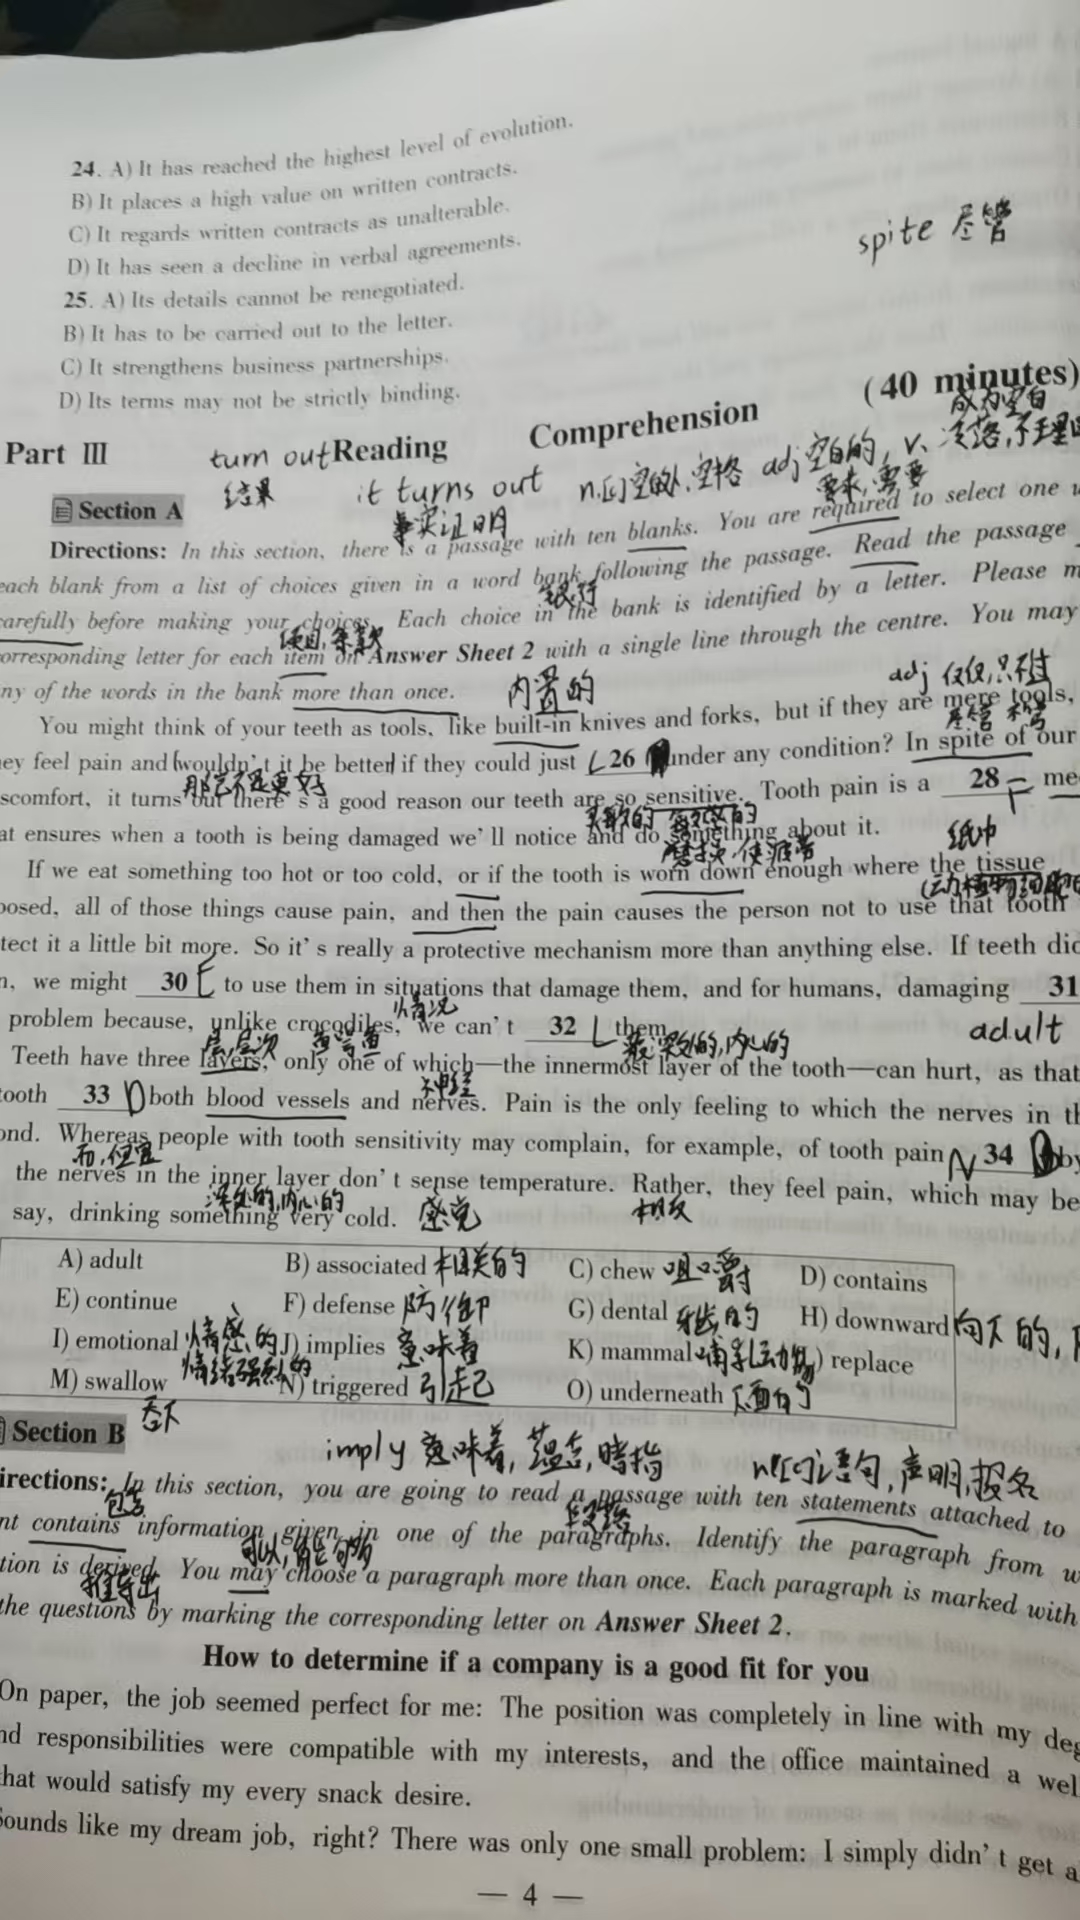 24. A) It has reached the highest level of evolution.
B) It places a high value on written contracts.
C) It regards written contracts as unalterable.
D) It has seen a decline in verbal agreements.
spite 尽管
25. A) Its details cannot be renegotiated.
B) It has to be carried out to the letter.
C) It strengthens business partnerships.
D) Its terms may not be strictly binding.
Part III Reading Comprehension (40 minutes)
turn out
结果
it turns out
事实证明
n.[c]空白处,空格 adj 空白的, v.
成为空白
要求,需要
Section A
Directions: In this section, there is a passage with ten blanks. You are required to select one
each blank from a list of choices given in a word bank following the passage. Read the passage
银行
arefully before making your choices. Each choice in the bank is identified by a letter. Please
项目,条款
orresponding letter for each item on Answer Sheet 2 with a single line through the centre. You may
ny of the words in the bank more than once.
内置的
adj 仅仅,只不过
You might think of your teeth as tools, like built-in knives and forks, but if they are mere tools,
尽管 不管
ey feel pain and (wouldn't it be better) if they could just L 26 under any condition? In spite of our
那岂不是更好
scomfort, it turns out there's a good reason our teeth are so sensitive. Tooth pain is a 28 F me
at ensures when a tooth is being damaged we'll notice and do something about it.
纸巾
If we eat something too hot or too cold, or if the tooth is worn down enough where the tissue
posed, all of those things cause pain, and then the pain causes the person not to use that tooth
tect it a little bit more. So it's really a protective mechanism more than anything else. If teeth did
n, we might 30 E to use them in situations that damage them, and for humans, damaging 31
情况
problem because, unlike crocodiles, we can't 32 L them.
adult
层,层次
最深处的,内心的
Teeth have three layers, only one of which—the innermost layer of the tooth—can hurt, as that
神经
ooth 33 D both blood vessels and nerves. Pain is the only feeling to which the nerves in th
ond. Whereas people with tooth sensitivity may complain, for example, of tooth pain N 34 by
the nerves in the inner layer don't sense temperature. Rather, they feel pain, which may be
深处的,内心的
say, drinking something very cold.
感觉
相反
A) adult B) associated 相关的 C) chew 咀嚼 D) contains
E) continue F) defense 防御 G) dental 牙齿的 H) downward 向下的,
I) emotional 情感的 J) implies 意味着 K) mammal 哺乳动物 L) replace
情绪强烈的
M) swallow N) triggered 引起 O) underneath 下面的
吞下
Section B
imply 意味着,蕴含,暗指
n[c]语句,声明,报名
irections: In this section, you are going to read a passage with ten statements attached to
包含
段落
nt contains information given in one of the paragraphs. Identify the paragraph from w
可以,能够
tion is derived. You may choose a paragraph more than once. Each paragraph is marked with
推导出
the questions by marking the corresponding letter on Answer Sheet 2.
How to determine if a company is a good fit for you
On paper, the job seemed perfect for me: The position was completely in line with my deg
nd responsibilities were compatible with my interests, and the office maintained a wel
hat would satisfy my every snack desire.
Sounds like my dream job, right? There was only one small problem: I simply didn't get a
— 4 —